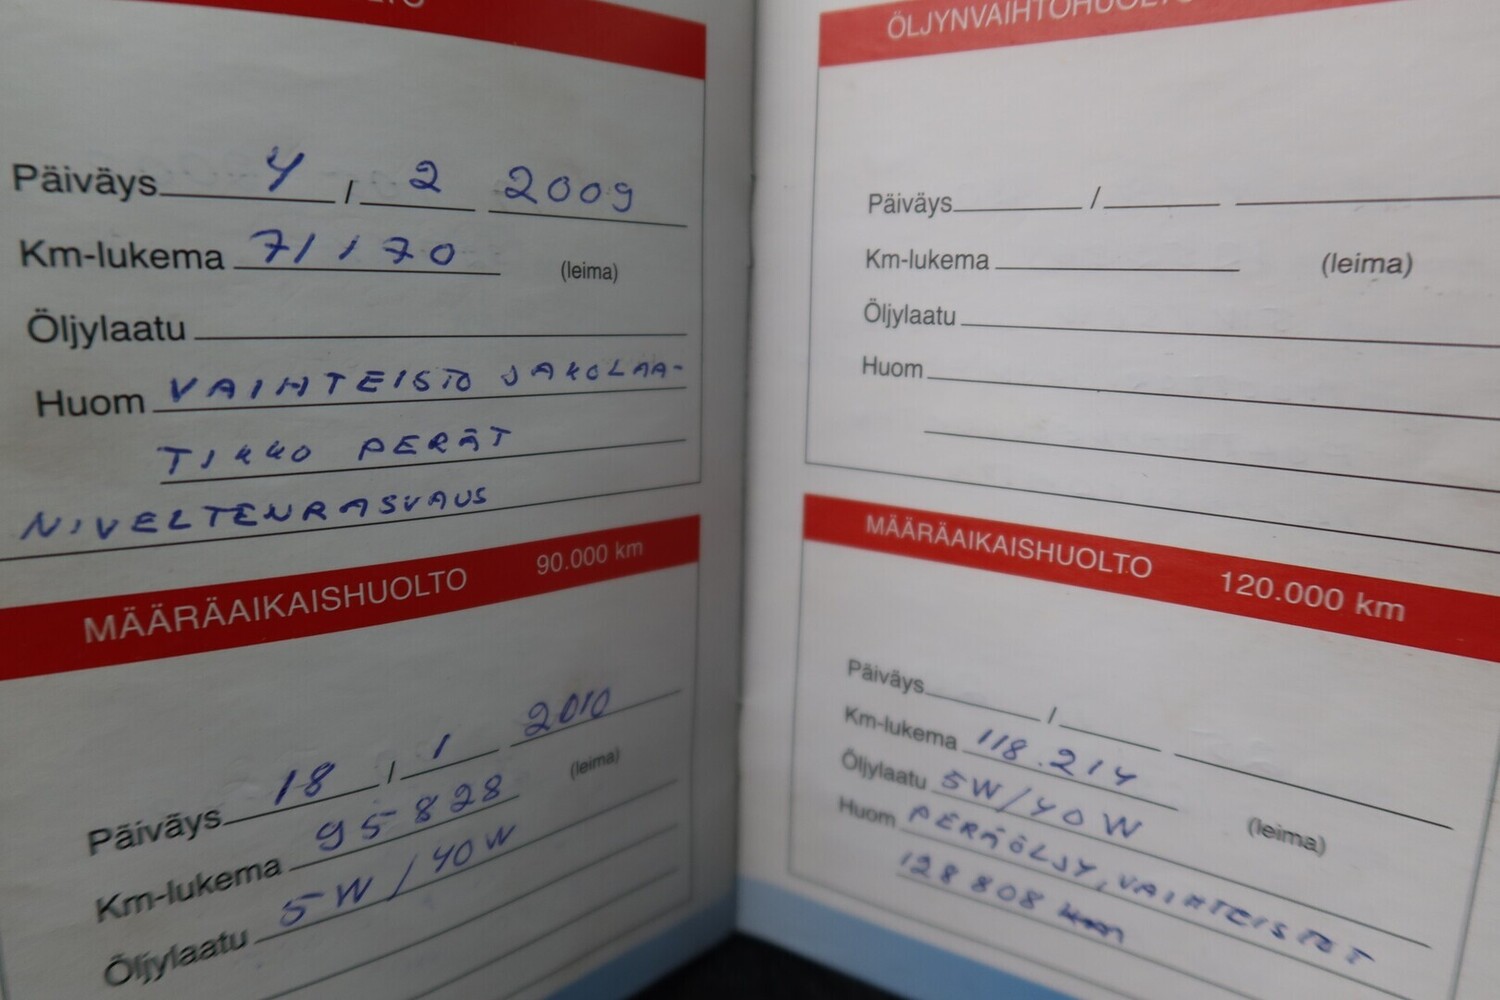 LTO
Päiväys 4 / 2 2009
Km-lukema 71170 (leima)
Öljylaatu
Huom VAIHTEISTO JAKOLAA-
TIKKO PERÄT
NIVELTENRASVAUS
MÄÄRÄAIKAISHUOLTO 90.000 km
Päiväys 18 / 1 2010
Km-lukema 95828 (leima)
Öljylaatu 5W/40W
ÖLJYNVAIHTOHUOLTO
Päiväys /
Km-lukema (leima)
Öljylaatu
Huom
MÄÄRÄAIKAISHUOLTO 120.000 km
Päiväys /
Km-lukema 118.214
Öljylaatu 5W/40W (leima)
Huom PERÄÖLJY, VAIHTEISTOT
128808